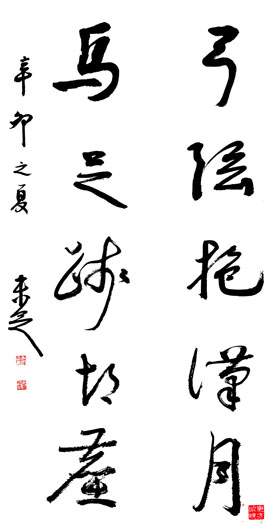 弓弦抱漢月
馬足踐胡塵
辛卯之夏